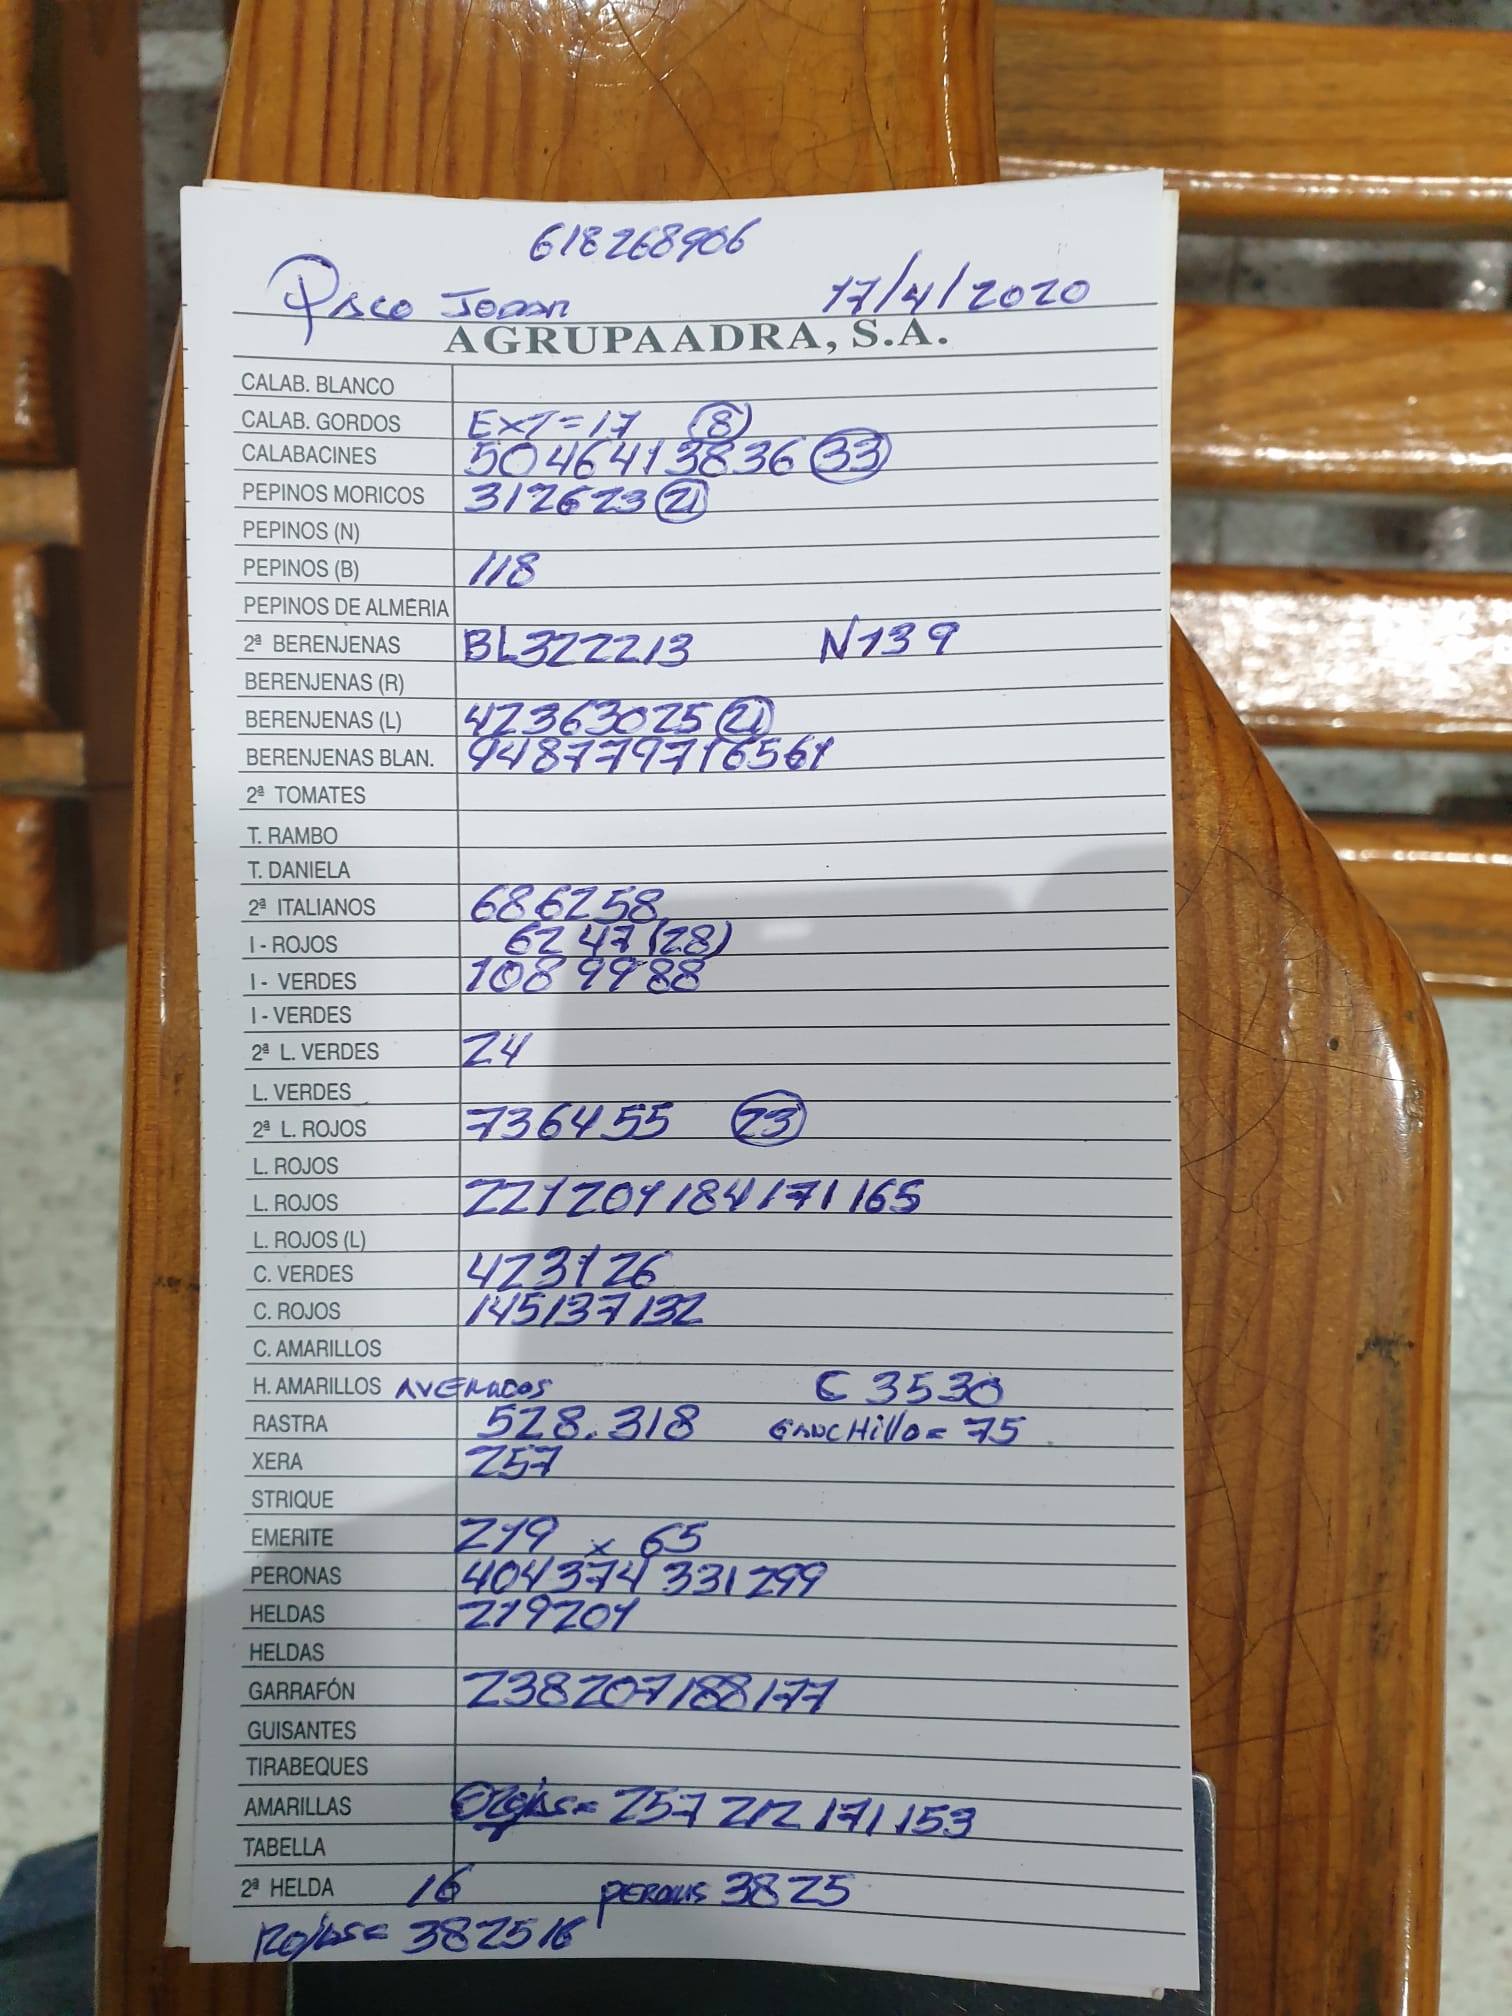 618268906
Paco Joaan 17/4/2020
AGRUPAADRA, S.A.
CALAB. BLANCO
CALAB. GORDOS EXT=17 (8)
CALABACINES 50464413836 (33)
PEPINOS MORICOS 312623 (21)
PEPINOS (N)
PEPINOS (B) 118
PEPINOS DE ALMERIA
2ª BERENJENAS BL322213 N139
BERENJENAS (R)
BERENJENAS (L) 42363025 (21)
BERENJENAS BLAN. 9487797716561
2ª TOMATES
T. RAMBO
T. DANIELA
2ª ITALIANOS 686258
I - ROJOS 6247 (28)
I - VERDES 1089988
I - VERDES
2ª L. VERDES 24
L. VERDES
2ª L. ROJOS 736455 (23)
L. ROJOS
L. ROJOS 221201184171165
L. ROJOS (L)
C. VERDES 423126
C. ROJOS 145137132
C. AMARILLOS
H. AMARILLOS C 3530
RASTRA 528.318 GANCHillo= 75
XERA 257
STRIQUE
EMERITE 219 x 65
PERONAS 404374331299
HELDAS 219201
HELDAS
GARRAFÓN 238207188177
GUISANTES
TIRABEQUES
AMARILLAS 257 212 171 153
TABELLA
2ª HELDA 16 PERONAS 3825
ROJAS= 382516